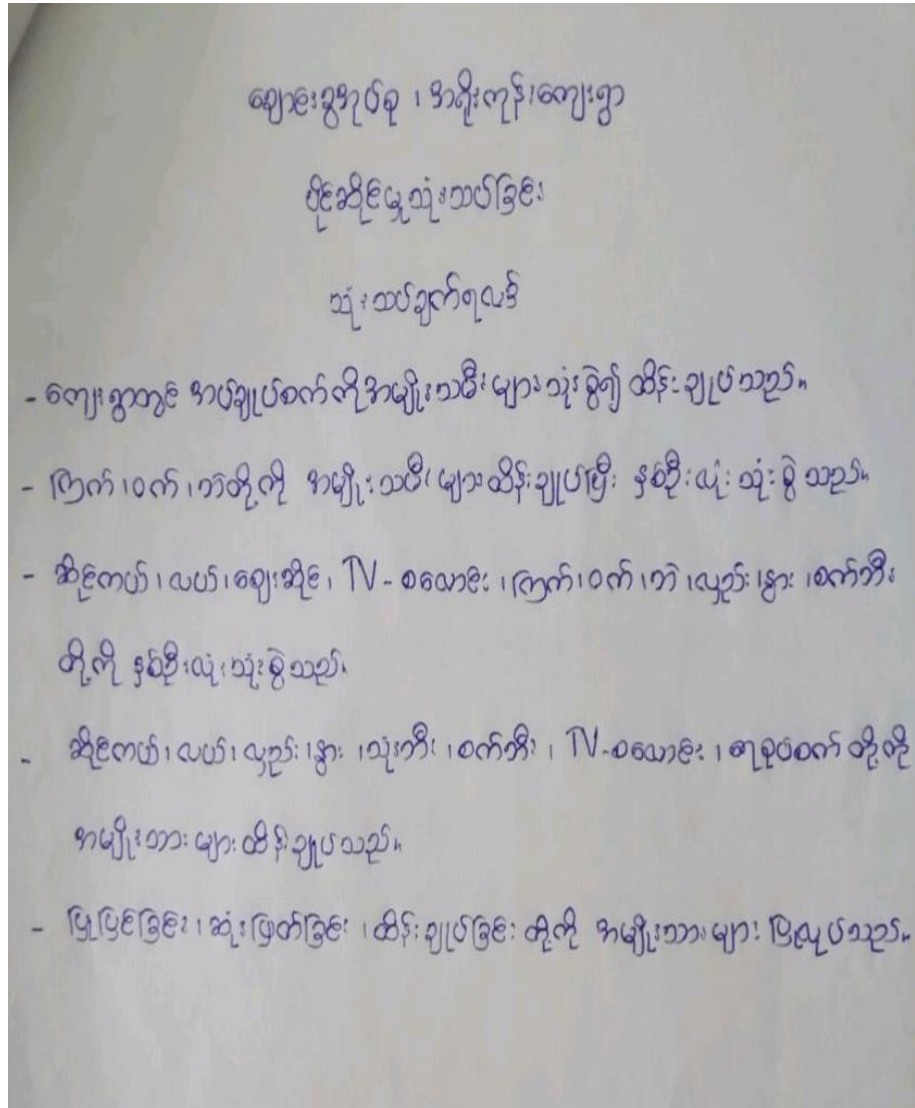 ချောင်းခွအုပ်စု ၊ အရိုးကုန်းကျေးရွာ
ပိုင်ဆိုင်မှုသုံးသပ်ခြင်း
သုံးသပ်ချက်ရလဒ်
- ကျေးရွာတွင် အပ်ချုပ်စက်ကိုအမျိုးသမီးများသုံးစွဲ၍ ထိန်းချုပ်သည်။
- ကြက် ၊ ဝက် ၊ ဘဲတို့ကို အမျိုးသမီးများထိန်းချုပ်ပြီး နှစ်ဦးလုံးသုံးစွဲသည်။
- ဆိုင်ကယ် ၊ လယ် ၊ ဈေးဆိုင် ၊ TV - စလောင်း ၊ ကြက် ၊ ဝက် ၊ ဘဲ ၊ လှည်း ၊ နွား ၊ စက်ဘီး
တို့ကို နှစ်ဦးလုံးသုံးစွဲသည်။
- ဆိုင်ကယ် ၊ လယ် ၊ လှည်း ၊ နွား ၊ သုံးဘီး ၊ စက်ဘီး ၊ TV-စလောင်း ၊ ရေစုပ်စက် တို့ကို
အမျိုးသားများထိန်းချုပ်သည်။
- ပြုပြင်ခြင်း ၊ ဆုံးဖြတ်ခြင်း ၊ ထိန်းချုပ်ခြင်းတို့ကို အမျိုးသားများ ပြုလုပ်သည်။